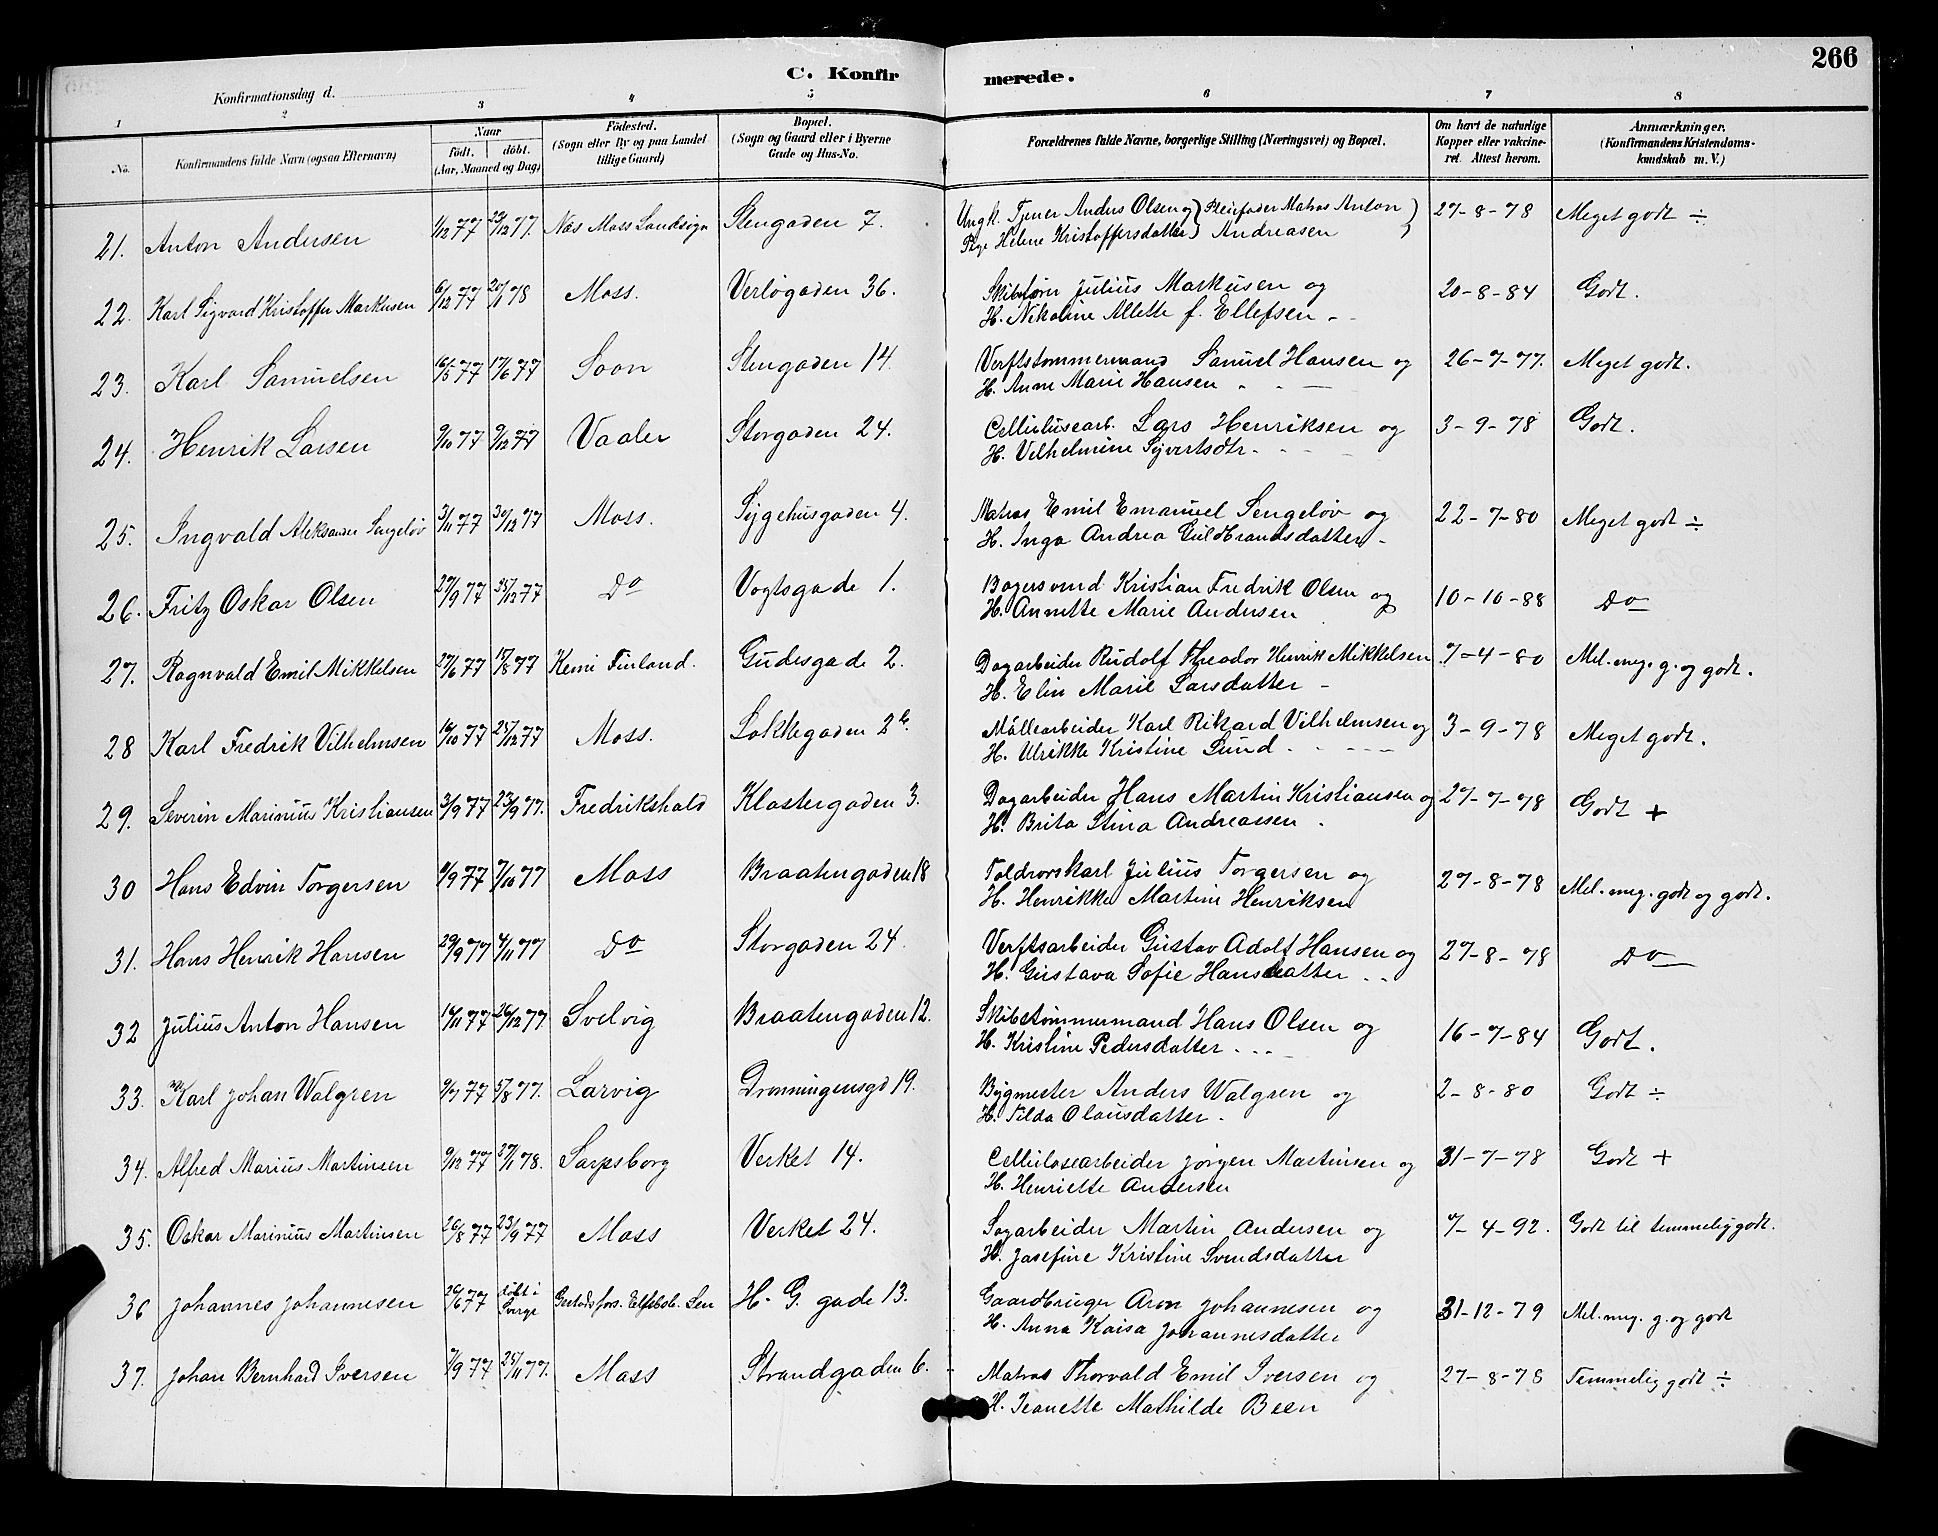 266
C. Konfirmerede.
Konfirmationsdag d.
1 2 3 4 5 6 7 8
No. Konfirmandens fulde Navn (ogsaa Efternavn) Naar Født. døbt. (Aar, Maaned og Dag) Fødested. (Sogn eller By og paa Landet tillige Gaard) Bopæl. (Sogn og Gaard eller i Byerne Gade og Hus-No. Forældrenes fulde Navne, borgerlige Stilling (Næringsvei) og Bopæl. Om havt de naturlige Kopper eller vakcineret. Attest herom. Anmærkninger. (Konfirmandens Kristendomskundskab m. V.)
21. Anton Andersen 1/12 77 23/12 77. Næs Moss Landsogn Stengaden 7. Ungk. Tjener Anders Olsen og Pige Helene Kristoffersdatter Pleiefader Matros Anton Andreasen 27-8-78 Meget godt ÷
22. Karl Sigvard Kristoffer Markusen 6/12 77 20/1 78 Moss. Verløgaden 36. Skibsfører Julius Markusen og
H. Nikoline Allette f. Ellefsen - 20-8-84 Godt.
23. Karl Samuelsen 16/5 77 17/6 77 Soon Stengaden 14. Verftstømmermand Samuel Hansen og
H. Anne Marie Hansen 26-7-77. Meget godt.
24. Henrik Larsen 9/10 77 9/12 77 Vaaler Storgaden 24. Cellulusearb. Lars Henriksen og
H. Vilhelmine Syvertsdtr. 3-9-78 Godt.
25. Ingvald Aleksander Sengeløv 3/11 77 30/12 77 Moss. Sygehusgaden 4. Matros Emil Emanuel Sengeløv og
H. Inga Andrea Guldbrandsdatter - 22-7-80 Meget godt ÷
26. Fritz Oskar Olsen 27/9 77 25/12 77 Do Vogtsgade 1. Bagersvend Kristian Fredrik Olsen og
H. Annette Marie Andersen 10-10-88 Do
27. Ragnvald Emil Mikkelsen 27/6 77 17/8 77 Kemi Finland. Gudesgade 2. Dagarbeider Rudolf Theodor Henrik Mikkelsen
H. Elin Marie Larsdatter - 7-4-80 Mel. meg. g. og godt.
28 Karl Fredrik Vilhelmsen 16/10 77 25/12 77 Moss. Løkkegaden 2b Møllearbeider Karl Rikard Vilhelmsen og
H. Ulrikke Kristine Lund 3-9-78 Meget godt.
29. Severin Marinius Kristiansen 3/9 77 23/9 77. Fredrikshald Klostergaden 3. Dagarbeider Hans Martin Kristiansen og
H. Brita Stina Andreassen 27-7-78 Godt +
30 Hans Edvin Torgersen 8/9 77 7/10 77 Moss Braatengaden 18 Toldrorskarl Julius Torgersen og
H. Henrikke Martine Henriksen 27-8-78 Mel. meg. godt og godt.
31. Hans Henrik Hansen 29/9 77 4/11 77 Do Storgaden 24. Verftsarbeider Gustav Adolf Hansen og
H. Gustava Sofie Hansdatter 27-8-78 Do
32 Julius Anton Hansen 14/11 77 26/12 77. Svelvig Braatengaden 12. Skibstømmermand Hans Olsen og
H. Kristine Pedersdatter 16-7-84 Godt.
33. Karl Johan Walgren 9/7 77 5/8 77. Larvig Dronningensgd 19. Bygmester Anders Walgren og
H. Tilda Olausdatter 2-8-80 Godt ÷
34. Alfred Marius Martinsen 9/12 77 27/1 78. Sarpsborg Verket 14. Cellulosearbeider Jørgen Martinsen og
H. Henriette Andersen 31-7-78 Godt +
35. Oskar Marinius Martinsen 26/8 77 23/9 77 Moss Verket 24. Sagarbeider Martin Andersen og
H. Josefine Kristine Svendsdatter 7-4-92. Godt til temmelig godt.
36 Johannes Johannesen 20/6 77 døbt i Sverge Elfsbol. Len H. G. gade 13. Gaardbruger Aron Johannesen og
H. Anna Kaisa Johannesdatter 31-12-79 Mel. meg. g. og godt
37. Johan Bernhard Iversen 7/9 77 25/11 77. Moss Strandgaden 6. Matros Thorvald Emil Iversen og
H. Jeanette Mathilde Been 27-8-78 Temmelig godt ÷